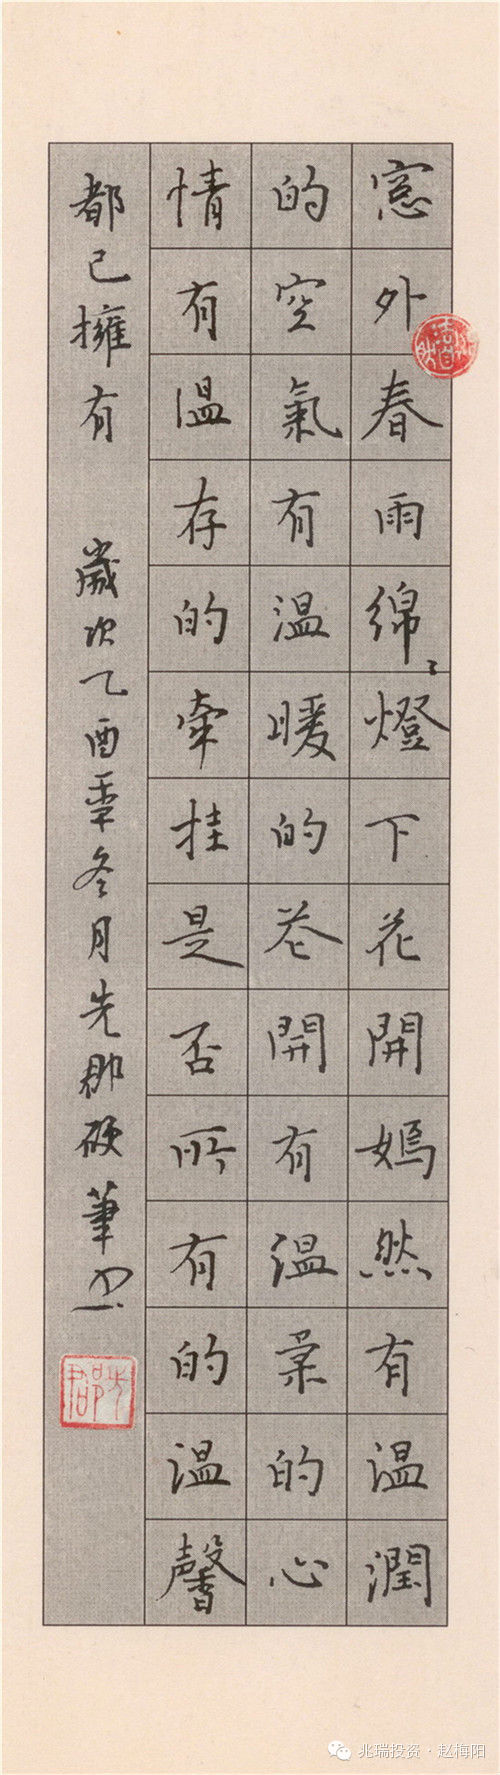 窓外春雨綿〻燈下花開嫣然有温潤
的空氣有温暖的花開有温柔的心
情有温存的牽挂是否所有的温馨
都已擁有 歲次乙酉年冬月先郡硬筆书
兆瑞投资 · 赵梅阳